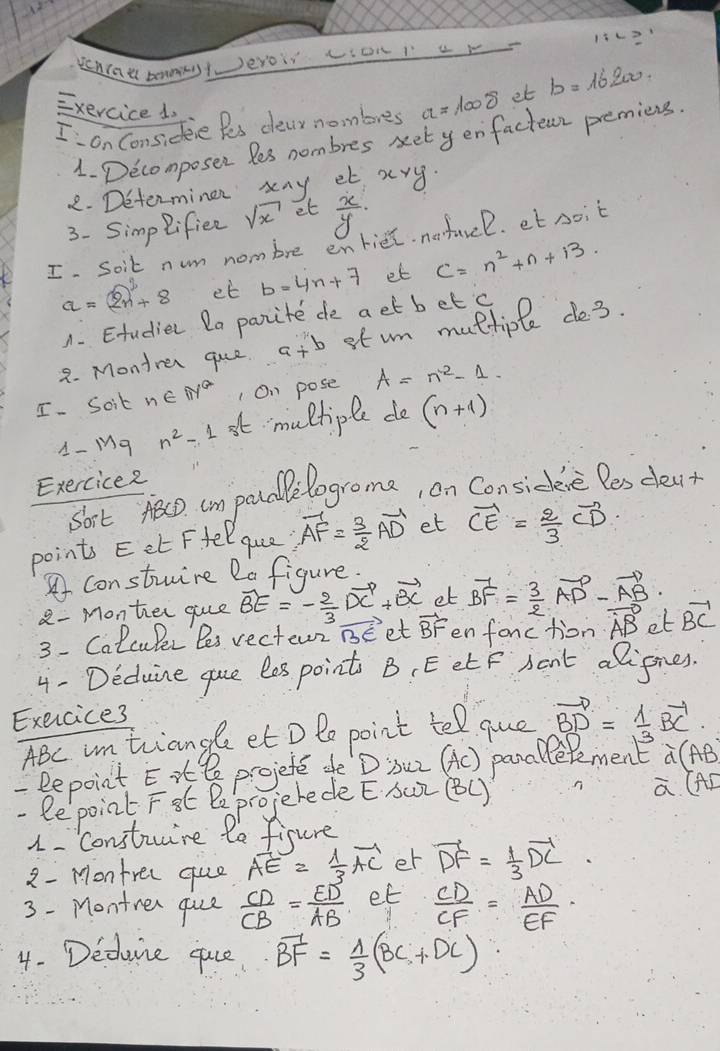 Devoir
Exercice 1.
I - On Considère les deux nombres a = 1008 et b = 16200.
1 - Décomposer les nombres x et y en facteur premiers.
2 - Déterminer x∧y et x∨y.
3 - Simplifier √x et x/y.
I - Soit n un nombre entier naturel. et soit
a = 2n + 8 et b = 4n + 7 et C = n² + n + 13.
1 - Etudier la parité de a et b et c
2 - Montrer que a + b est un multiple de 3.
I - Soit n ∈ IN*, on pose A = n² - 1.
1 - Mq n² - 1 est multiple de (n+1)
Exercice 2
Soit ABCD un parallélograme, on Considère les deux
points E et F tel que AF⃗ = 3/2 AD⃗ et CE⃗ = 2/3 CD⃗.
1 - Construire la figure.
2 - Montrer que BE⃗ = -2/3 DC⃗ + BC⃗ et BF⃗ = 3/2 AD⃗ - AB⃗.
3 - Calculer les vecteur BE⃗ et BF⃗ en fonction AB⃗ et BC⃗
4 - Déduire que les points B, E et F sont alignes.
Exercice 3
ABC un triangle et D le point tel que BD⃗ = 1/3 BC⃗.
- le point E est le projeté de D sur (AC) parallèlement à (AB
- le point F est le projete de E sur (BC) " à (AD
1 - Construire la figure
2 - Montrer que AE⃗ = 1/3 AC⃗ et DF⃗ = 1/3 DC⃗.
3 - Montrer que CD/CB = ED/AB et CD/CF = AD/EF.
4 - Déduire que BF⃗ = 1/3 (BC + DC).